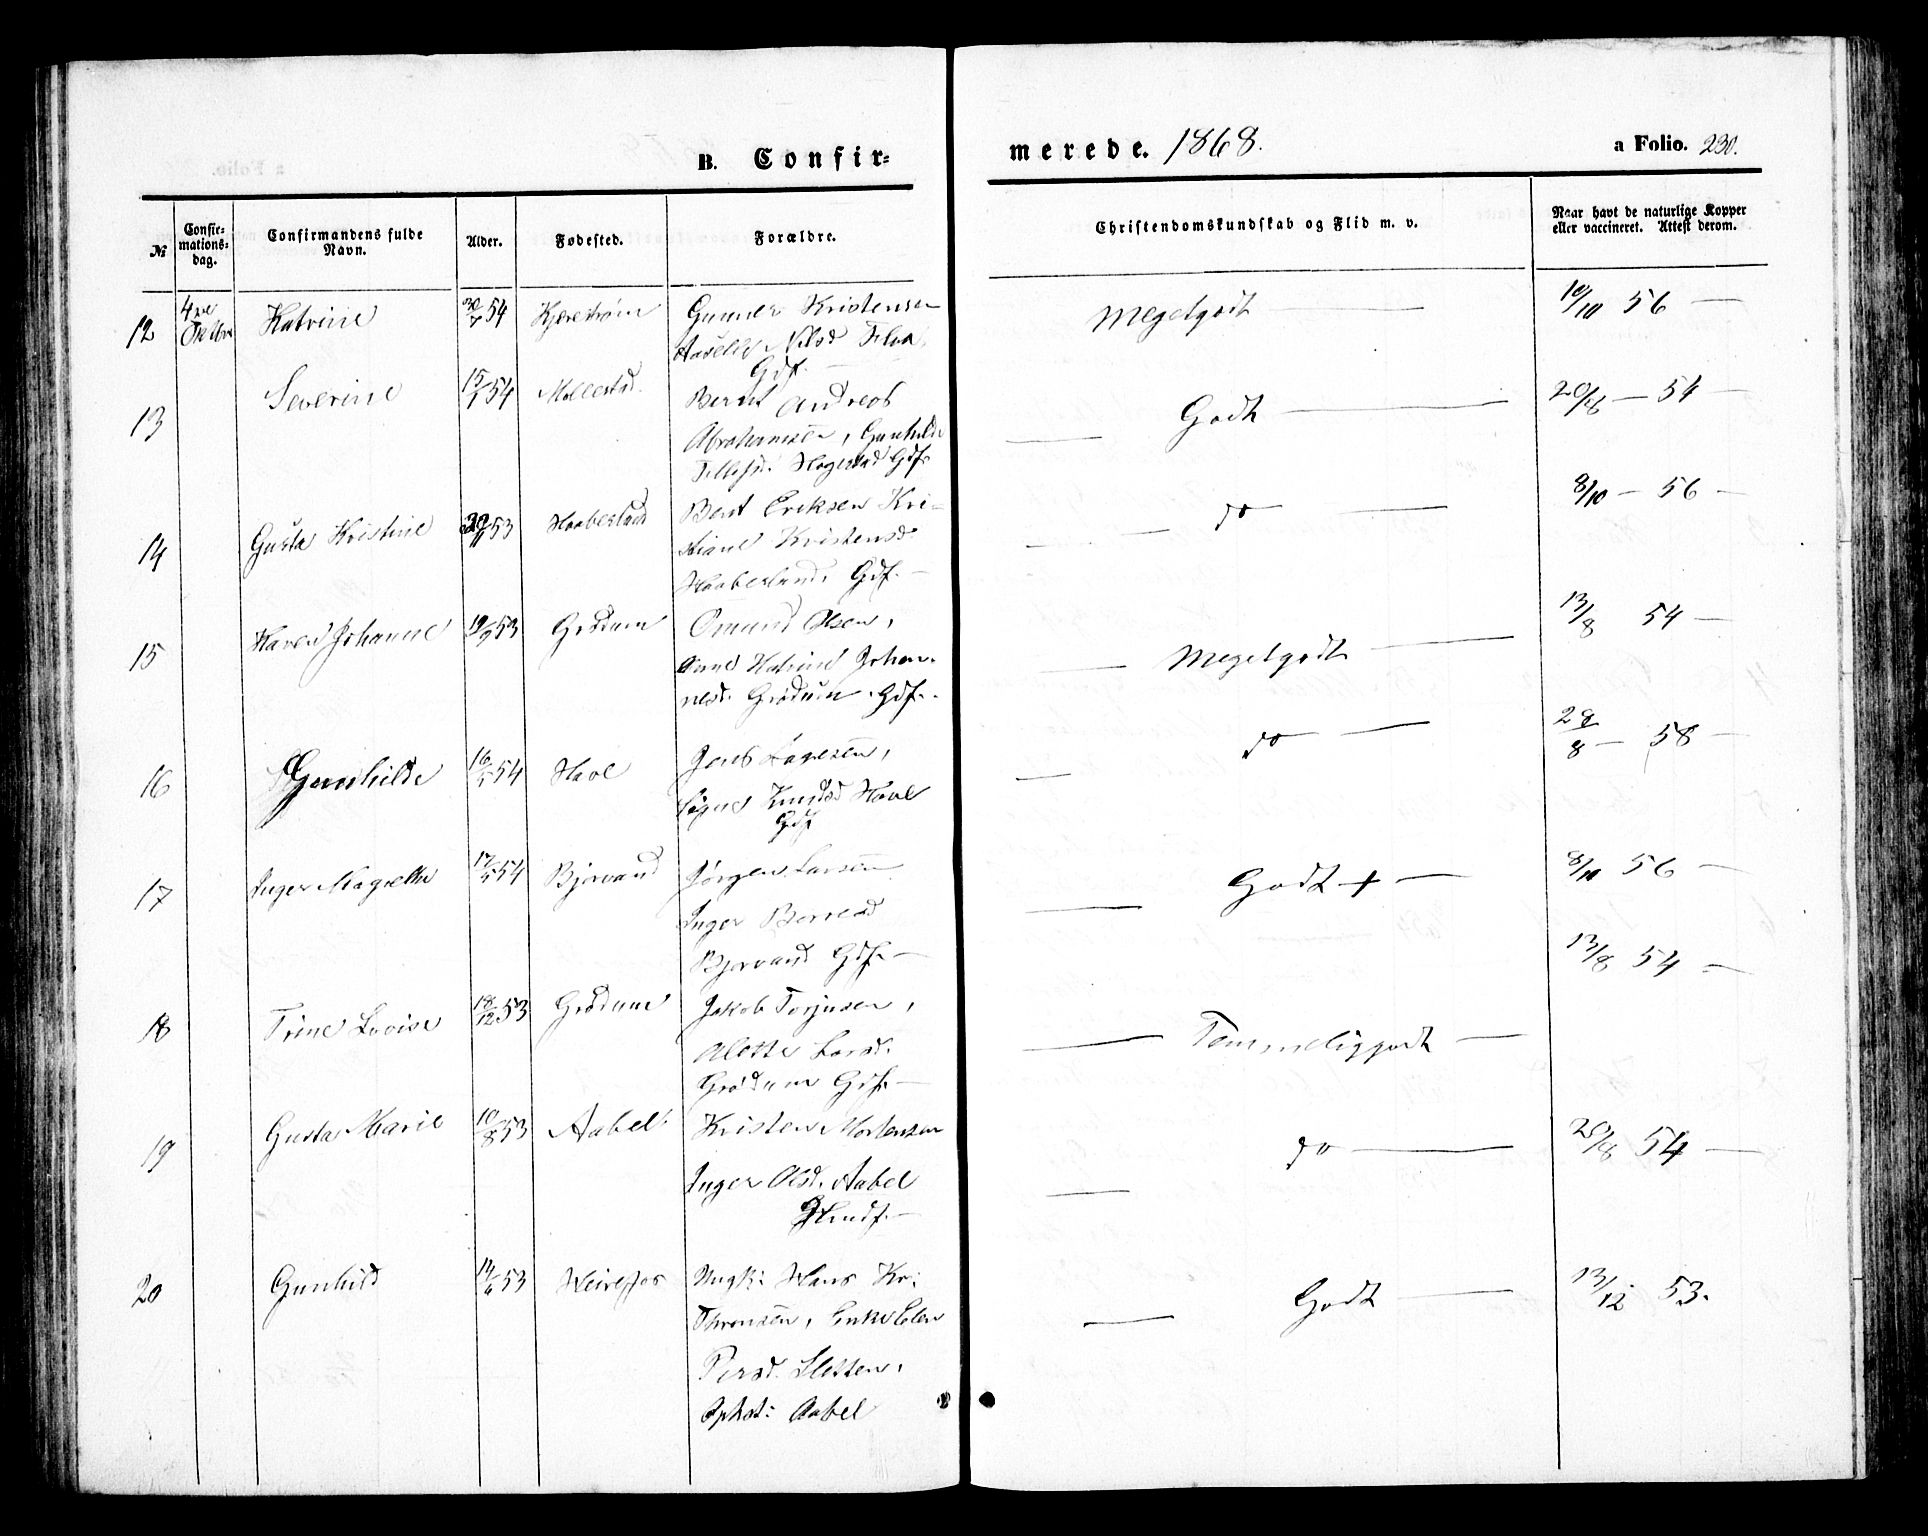 B. Confir=
merede. 1868.
a Folio. 230.
№
Confir-
mations-
dag.
Confirmandens fulde
Navn.
Alder.
Fødested.
Forældre.
Christendomskundskab og Flid m. v.
Naar havt de naturlige Kopper
eller vaccineret. Attest derom.
12 4de Katrine 30/7 54 Gunner Kristensen
Gdf.
Megetgodt — 10/10 56 —
13 Severine 15/1 54 Mollestad Bernt Andreas
Abrahamsen, Gunhilde
Tellefsd. Hogestad Gdf.
Godt — 20/8 — 54 —
14 Gusta Kristine 53 Haabesland Bent Eriksen Kri-
stiane Kristensd.
Haabesland, Gdf. —
do — 8/10 — 56 —
15 Karen Johanne 19/9 53 Grødum Omund Olsen,
Anne Katrine Johan-
nesd. Grødum. Gdf.
Megetgodt — 13/8 54 —
16 Gunhilde 16/5 54 Have Jens Aagesen,
Signe Knudsd Have
Gdf
do — 28/8 — 58 —
17 Inger Magrethe 17/5 54 Bjorvand Jørgen Larsen
Inger Berresd
Bjorvand Gdf. —
Godt + — 8/10 56 —
18 Trine Lovise 18/12 53 Grødum Jakob Torjusen,
Alette Larsd.
Grødum Gdf. —
Temmeliggodt — 13/8 54 —
19 Gusta Marie 10/8 53 Aabel. Kristen Mortensen
Inger Olsd. Aabel
Hmdf. —
do — 54 —
20 Gunhild 53 Ungk: Hans Kr:
Thronsen, Enke Elen
Persd. Sletten,
Ophst: Aabel
Godt — 13/12 53.